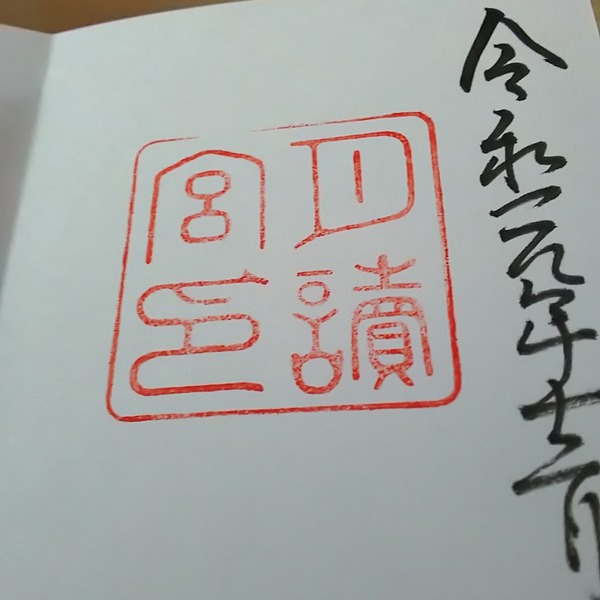 令和元年十二月
月讀
宮印